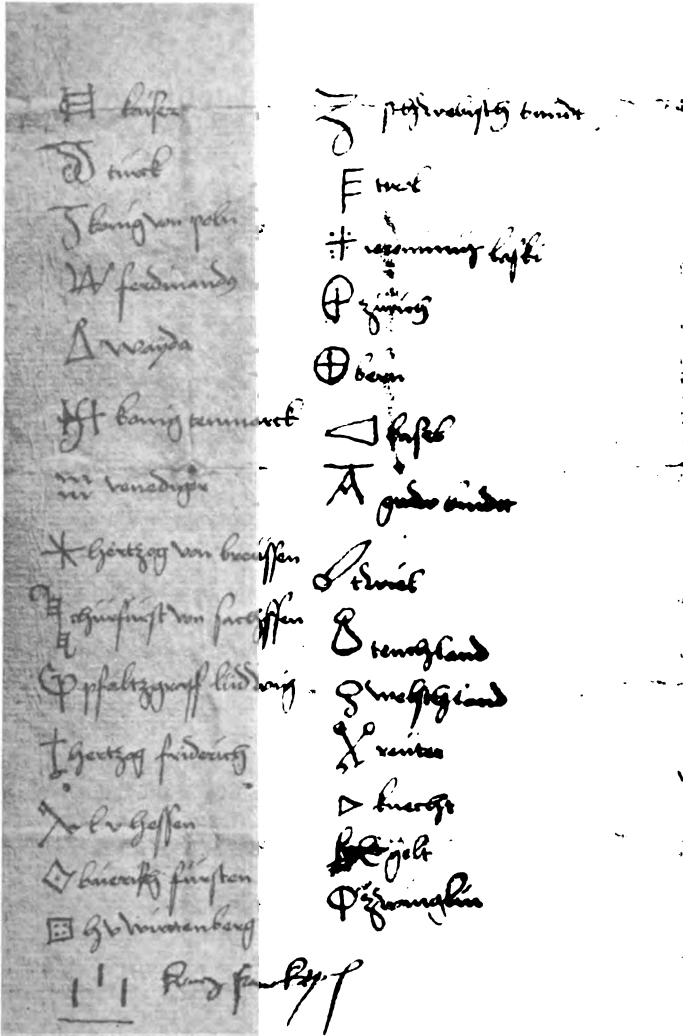 keiser
turck
konig von poln
ferdinandus
wayda
konig tenmarck
venediger
hertzog von breussen
churfurst von sachssen
pfaltzgraff ludwig
hertzog friderich
l v hessen
baierisch fursten
h v wirttenberg
kunig franckrych
schwebisch bundt
laski
zürich
bern
basel
teuchland
welschland
reuter
knecht
gelt
zwinglin